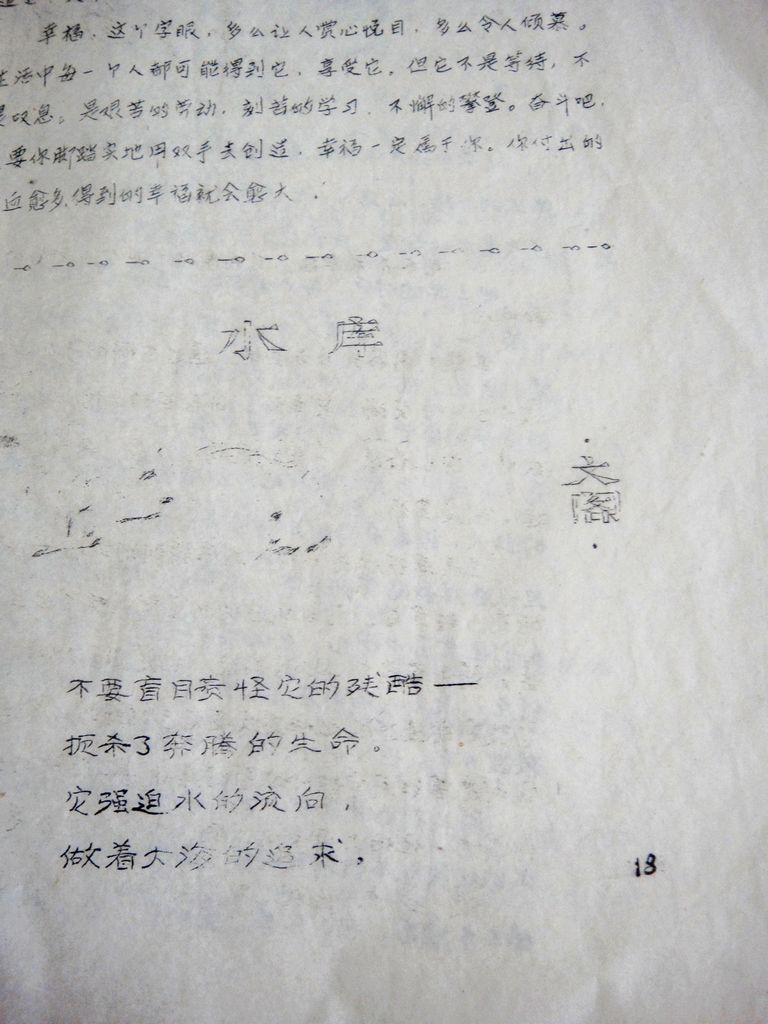 幸福,这个字眼,多么让人赏心悦目,多么令人倾慕。
生活中每一个人都可能得到它,享受它。但它不是等待,不
是叹息。是艰苦的劳动,刻苦的学习,不懈的攀登。奋斗吧,
要你脚踏实地用双手去创造,幸福一定属于你。你付出的
血愈多,得到的幸福就会愈大.
水 库
·文阁·
不要盲目责怪它的残酷——
扼杀了奔腾的生命。
它强迫水的流向,
做着大海的追求,
18